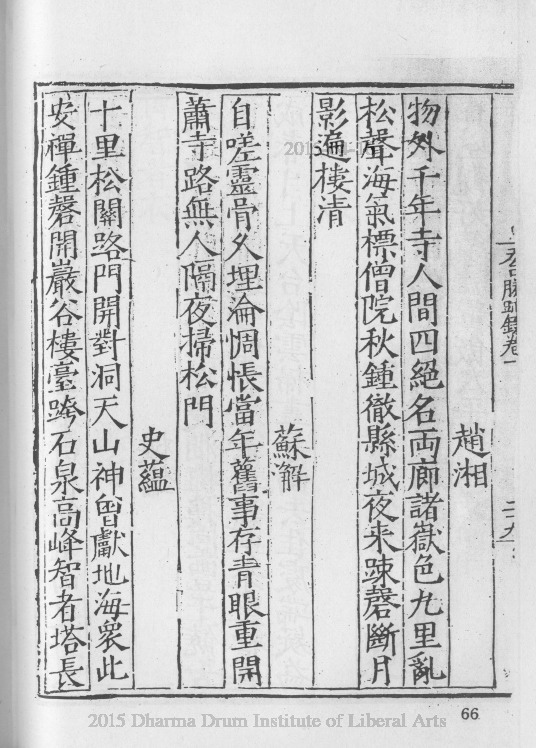 天台勝蹟錄卷一
二十九
趙湘
物外千年寺人間四絕名両廊諸嶽色九里亂
松聲海氣標僧院秋鍾徹縣城夜来踈磬斷月
影遍樓清
蘇澥
自嗟靈骨久埋淪惆悵當年舊事存青眼重開
蕭寺路無人隔夜掃松門
史蘊
十里松關路門開對洞天山神曾獻地海衆此
安禪鍾磬開巖谷樓臺跨石泉高峰智者塔長
2015 Dharma Drum Institute of Liberal Arts
66